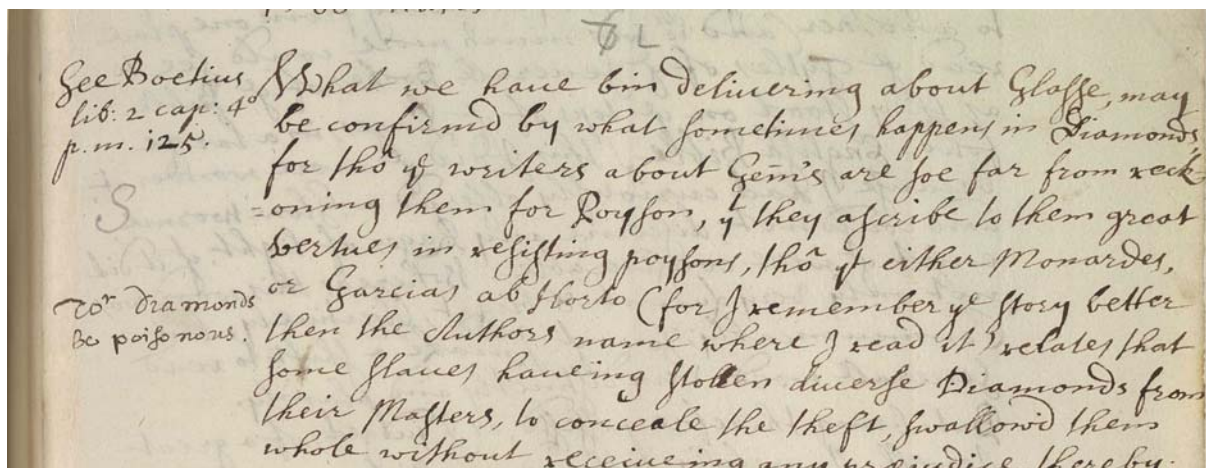 See Boetius
lib: 2 cap: 4o
p. m. 125.
What we have bin delivering about Glasse, may
be confirmd by what sometimes happens in Diamonds,
for thô ye writers about Gem's are soe far from reck-
=oning them for Poyson, yt they ascribe to them great
vertues in resisting poysons, thô yt either Monardes,
or Garcias ab Horto (for I remember ye story better
then the Authors name where I read it) relates that
some slaves haveing stollen diverse Diamonds from
their Masters, to conceale the theft, swallowd them
whole without receiveing any prejudice thereby.
S
Diamonds
be poisonous.